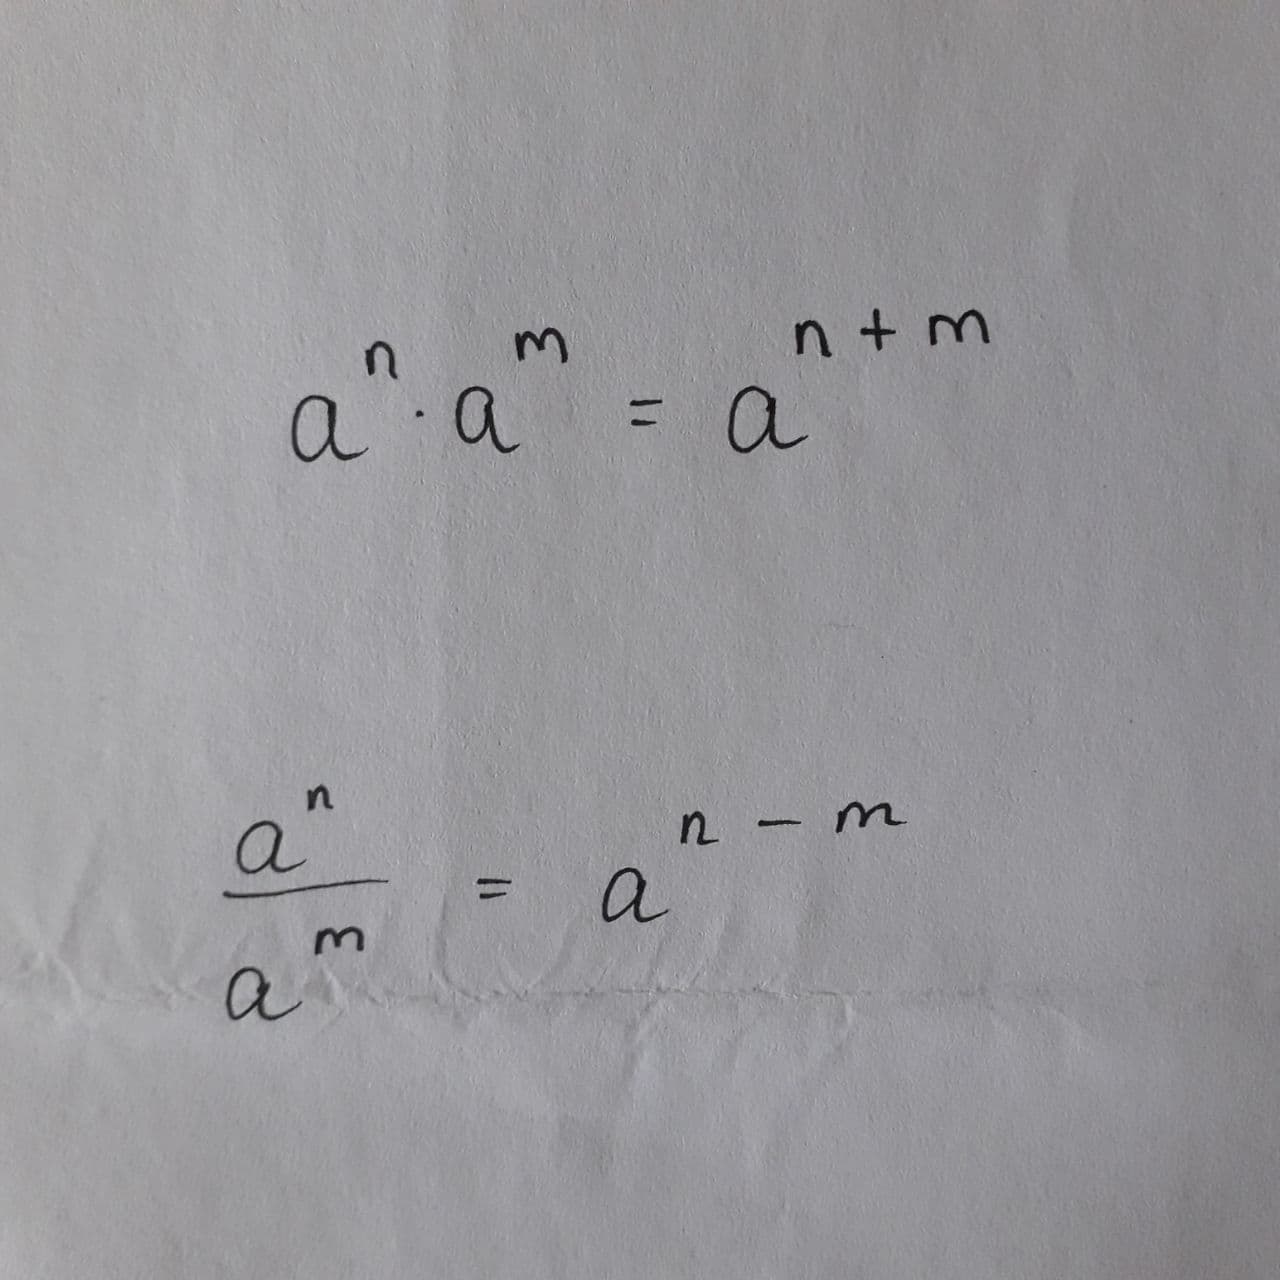 aⁿ · aᵐ = aⁿ⁺ᵐ
aⁿ/aᵐ = aⁿ⁻ᵐ